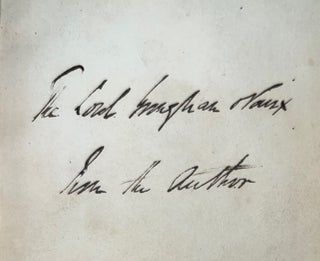 The Lord Brougham & Vaux
From the Author